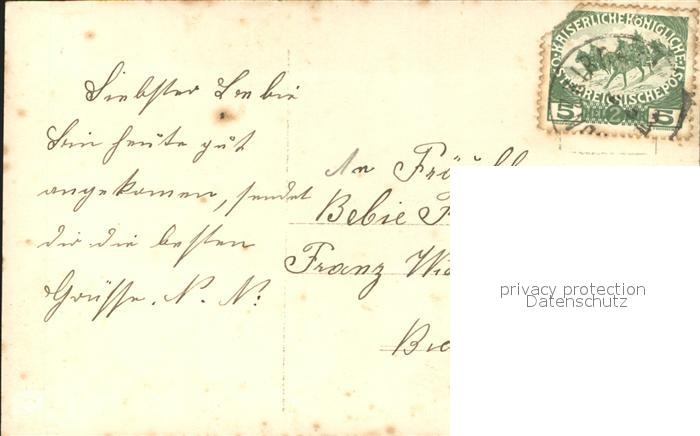 Liebster Bebie
Bin heute gut
angekomen, sendet
dir die besten
Grüsse. N. N.
An Fräul
Bebie
Franz Wid
KAISERLICHEKÖNIGLICHE
ÖSTERREICHISCHEPOST
5 2 5
privacy protection
Datenschutz